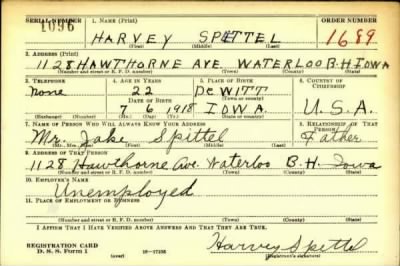 SERIAL NUMBER 1. NAME (Print) ORDER NUMBER
1096 HARVEY SPITTEL 1689
(First) (Middle) (Last)
2. ADDRESS (Print)
1128 HAWTHORNE AVE. WATERLOO B.H IOWA
(Number and street or R. F. D. number) (Town) (County) (State)
3. TELEPHONE 4. AGE IN YEARS 5. PLACE OF BIRTH 6. COUNTRY OF CITIZENSHIP
none 22 DEWITT
(Town or county)
DATE OF BIRTH
7 6 1918 IOWA U.S.A.
(Mo.) (Day) (Yr.) (State or country)
7. NAME OF PERSON WHO WILL ALWAYS KNOW YOUR ADDRESS 8. RELATIONSHIP OF THAT PERSON
Mr. Jake Spittel Father
(Mr., Mrs., Miss) (First) (Middle) (Last)
9. ADDRESS OF THAT PERSON
1128 Hawthorne Ave. Waterloo B.H. Iowa
(Number and street or R. F. D. number) (Town) (County) (State)
10. EMPLOYER'S NAME
Unemployed
11. PLACE OF EMPLOYMENT OR BUSINESS
(Number and street or R. F. D. number) (Town) (County) (State)
I AFFIRM THAT I HAVE VERIFIED ABOVE ANSWERS AND THAT THEY ARE TRUE.
REGISTRATION CARD
D. S. S. Form 1 (over) Harvey Spittel
(Registrant's signature)